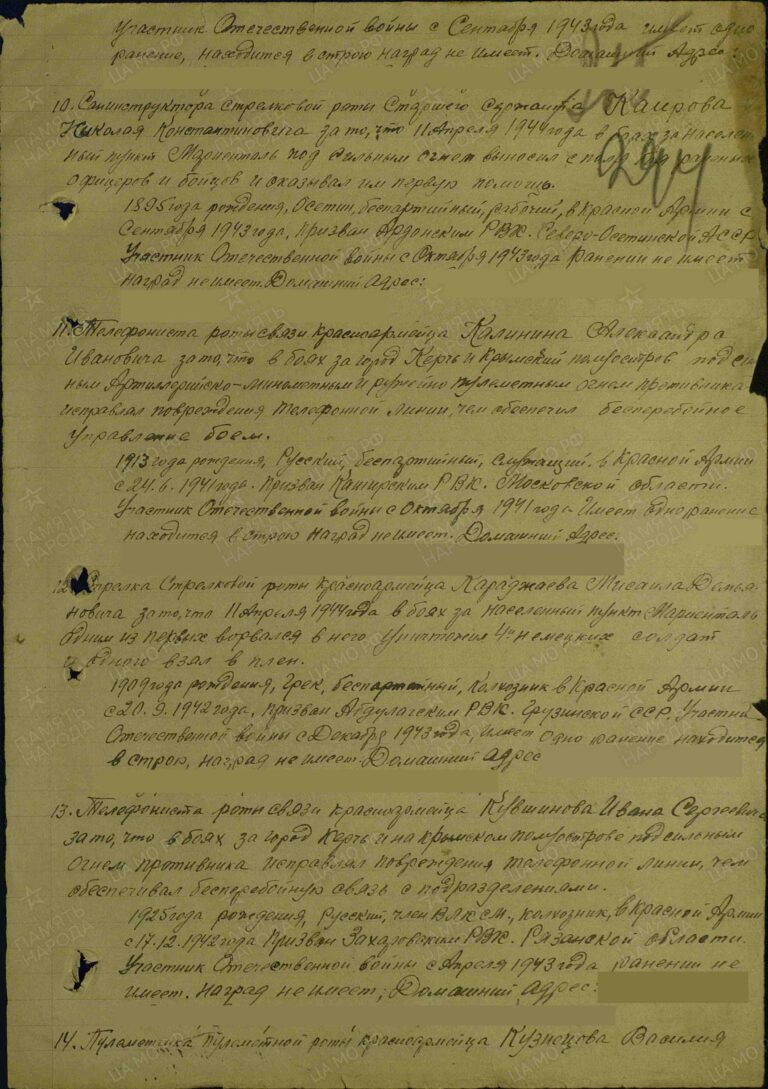 Участник Отечественной войны с Сентября 1943 года имеет одно
ранение, находится в строю наград не имеет. Домашний Адрес:
10. Санинструктора стрелковой роты Старшего Сержанта Каирова
Николая Константиновича за то, что 11 Апреля 1944 года в боях за населен-
ный пункт Мариенталь под сильным огнем выносил с поля раненых
офицеров и бойцов и оказывал им первую помощь.
1895 года рождения, Осетин, беспартийный, рабочий, в Красной Армии с
Сентября 1943 года, Призван Ардонским РВК. Северо-Осетинской АССР
Участник Отечественной войны с Октября 1943 года Ранений не имеет
наград не имеет. Домашний Адрес:
11. Телефониста роты связи Красноармейца Калинина Александра
Ивановича за то, что в боях за город Керчь и Крымский полуостров под силь-
ным Артиллерийско-минометным и ружейно пулеметным огнем противника
исправлял повреждения телефонной линии, чем обеспечил бесперебойное
управление боем.
1913 года рождения, Русский, беспартийный, служащий. в Красной Армии
с 24.6.1941 года. Призван Каширским РВК. Московской области.
Участник Отечественной войны с Октября 1941 года. Имеет одно ранение
находится в строю наград не имеет. Домашний Адрес.
12. Стрелка Стрелковой роты Красноармейца Караджаева Мисаила Демья-
новича за то, что 11 Апреля 1944 года в боях за населенный пункт Мариенталь
Одним из первых ворвался в него уничтожил 4х немецких солдат
и одного взял в плен.
1909 года рождения, Грек, беспартийный, Колхозник в Красной Армии
с 20.9.1942 года, призван РВК. Грузинской ССР. Участник
Отечественной войны с Декабря 1943 года, имеет одно ранение находится
в строю, наград не имеет. Домашний Адрес
13. Телефониста роты связи красноармейца Кувшинова Ивана Сергеевича
за то, что в боях за город Керчь и на крымском полуострове под сильным
огнем противника исправлял повреждения телефонной линии, чем
обеспечивал бесперебойную связь с подразделениями.
1925 года рождения, Русский, член ВЛКСМ., колхозник, в Красной Армии
с 17.12.1942 года Призван Захаровским РВК. Рязанской области.
Участник Отечественной войны с Апреля 1943 года ранений не
имеет. Наград не имеет; Домашний Адрес:
14. Пулеметчика пулеметной роты красноармейца Кузнецова Василия